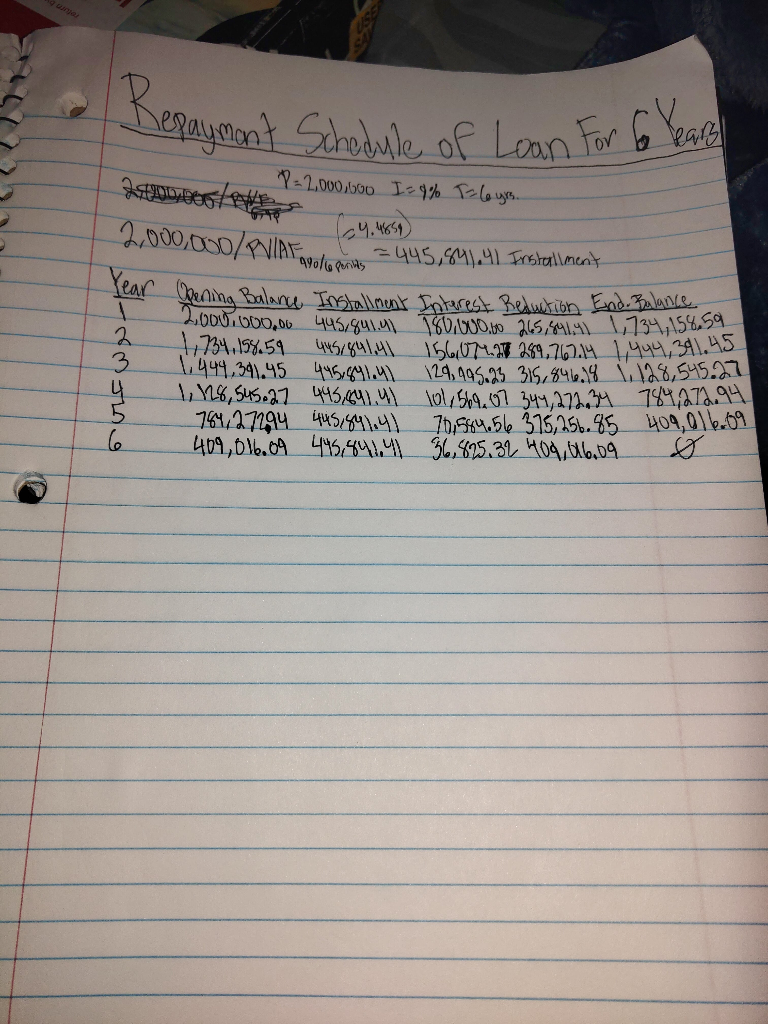 Repayment Schedule of Loan For 6 Years
P=2,000,000 I=9% T=6 yrs.
2,000,000/PVIAF 9%/6 periods (=4.4859) = 445,841.41 Installment
Year Opening Balance Installment Interest Reduction End. Balance
1 2,000,000.00 445,841.41 180,000.00 265,841.41 1,734,158.59
2 1,734,158.59 445,841.41 156,074.27 289,767.14 1,444,391.45
3 1,444,391.45 445,841.41 129,995.23 315,846.18 1,128,545.27
4 1,128,545.27 445,841.41 101,569.07 344,272.34 784,272.94
5 784,272.94 445,841.41 70,584.56 375,256.85 409,016.09
6 409,016.09 445,841.41 36,825.32 409,016.09 Ø